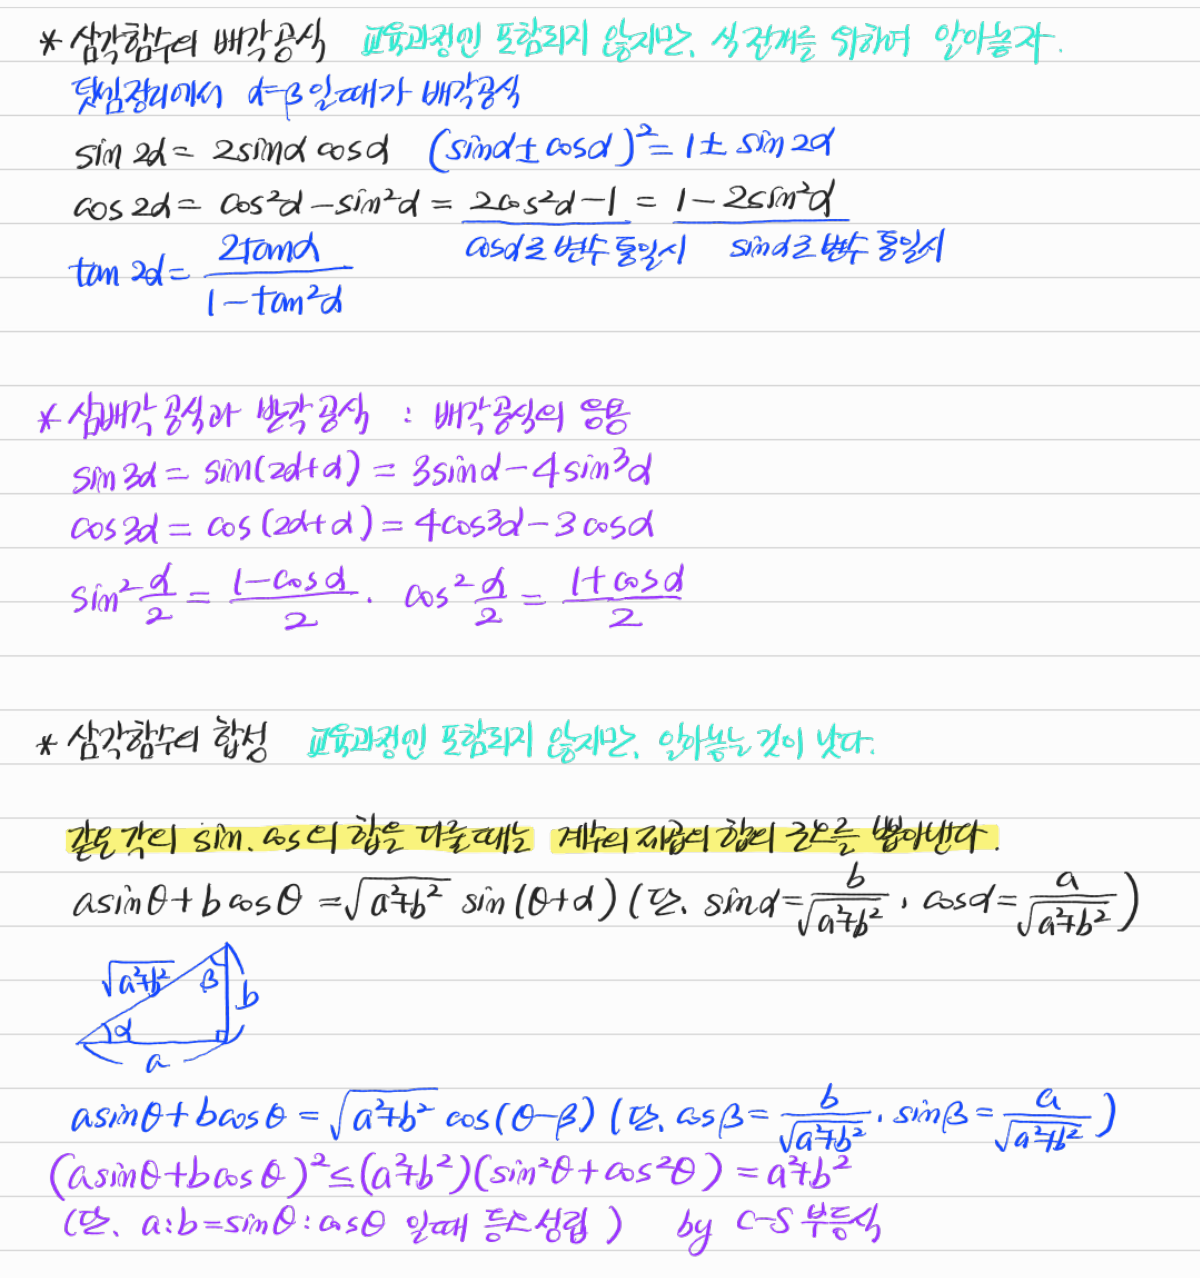 * 삼각함수의 배각공식 교육과정엔 포함되지 않지만, 식전개를 위하여 알아놓자.
덧셈정리에서 α=β일때가 배각공식
sin 2α = 2sinα cosα (sinα ± cosα)² = 1 ± sin 2α
cos 2α = cos²α - sin²α = 2cos²α - 1 = 1 - 2sin²α
cosα로 변수 통일시 sinα로 변수 통일시
tan 2α = 2tanα / (1 - tan²α)
* 삼배각 공식과 반각 공식 : 배각공식의 응용
sin 3α = sin(2α+α) = 3sinα - 4sin³α
cos 3α = cos(2α+α) = 4cos³α - 3cosα
sin² α/2 = (1-cosα)/2 . cos² α/2 = (1+cosα)/2
* 삼각함수의 합성 교육과정엔 포함되지 않지만, 알아놓는 것이 낫다.
같은 각의 sin. cos의 합을 다룰때는 계수의 제곱의 합의 루트를 뽑아낸다.
asinθ + bcosθ = √(a²+b²) sin(θ+α) (단, sinα = b/√(a²+b²), cosα = a/√(a²+b²))
√(a²+b²) β b
α
a
asinθ + bcosθ = √(a²+b²) cos(θ-β) (단, cosβ = b/√(a²+b²), sinβ = a/√(a²+b²))
(asinθ + bcosθ)² ≤ (a²+b²)(sin²θ + cos²θ) = a²+b²
(단, a:b = sinθ:cosθ 일때 등호성립) by C-S 부등식